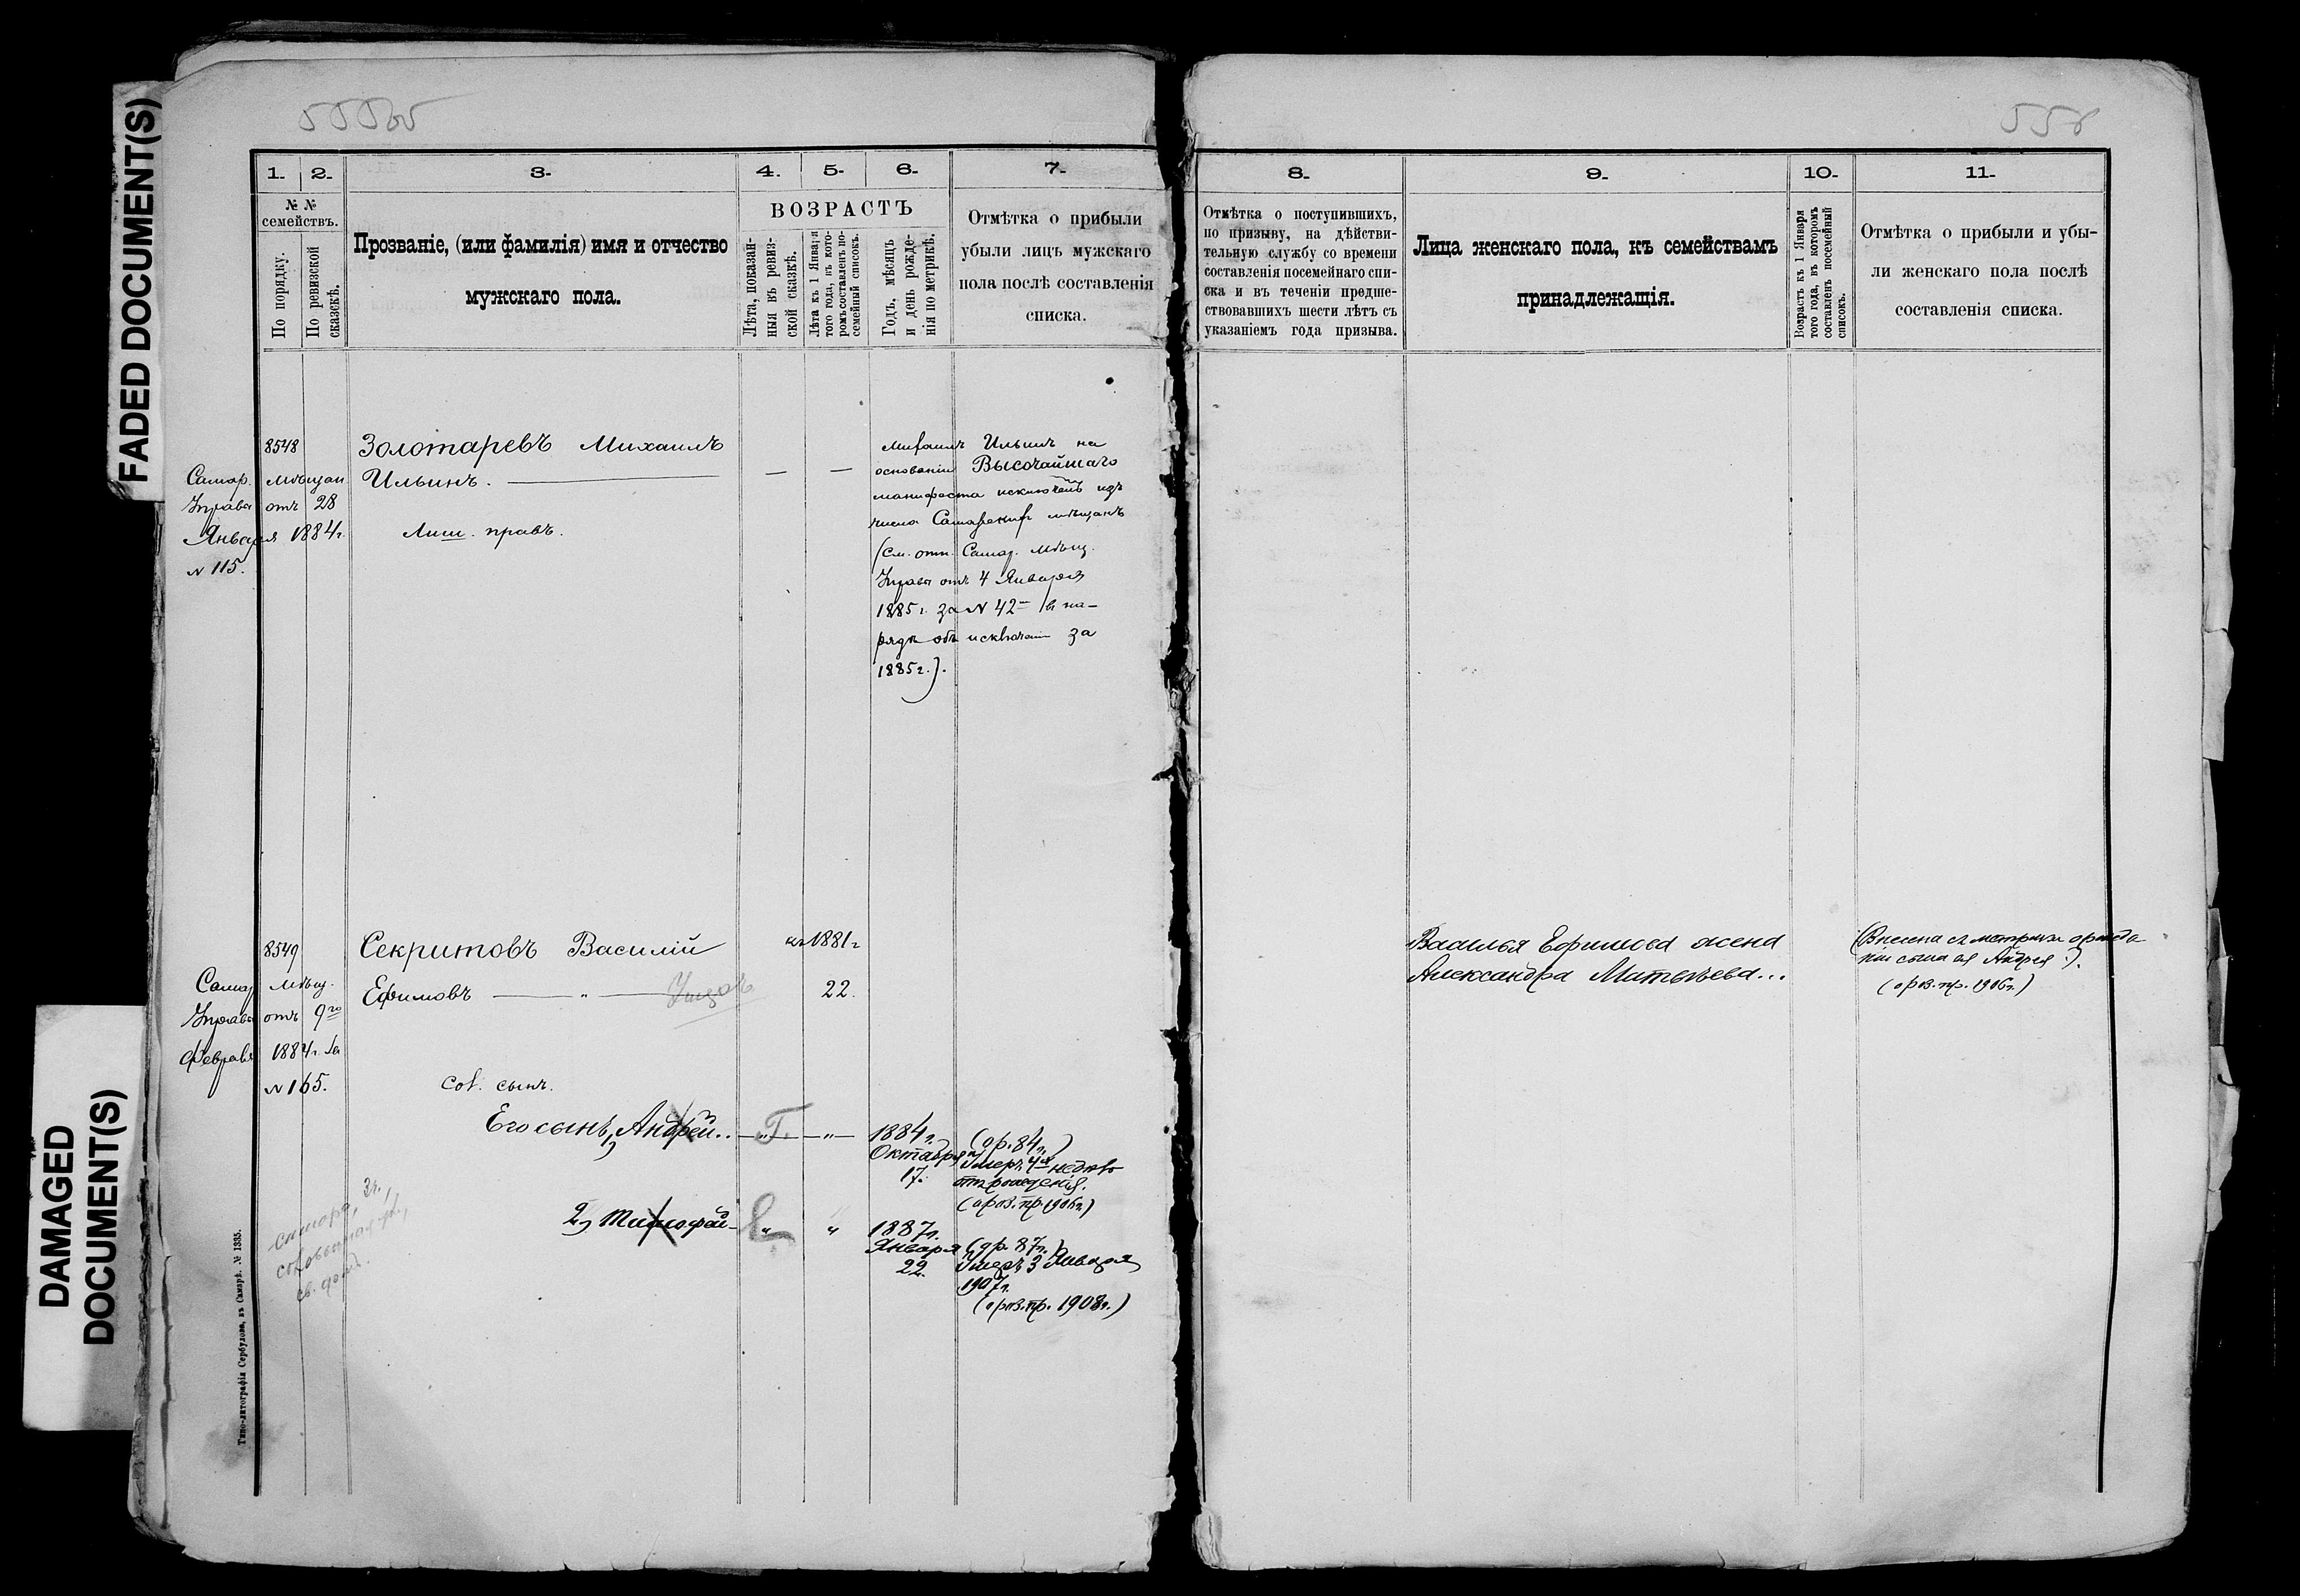 FADED DOCUMENT(S)
DAMAGED
DOCUMENT(S)
558
1. 2. 3. 4. 5. 6. 7.
№ №
семействъ.
По порядку.
По ревизской
сказкѣ.
Прозваніе, (или фамилія) имя и отчество
мужскаго пола.
ВОЗРАСТЪ
Лѣта, показан-
ныя въ ревиз-
ской сказкѣ.
Лѣта къ 1 Января
того года, въ кото-
ромъ составленъ по-
семейный списокъ.
Годъ, мѣсяцъ
и день рожде-
нія по метрикѣ.
Отмѣтка о прибыли
убыли лицъ мужскаго
пола послѣ составленія
списка.
8548
Самар. мѣщан.
Управа отъ 28
Января 1884г.
№ 115.
Золотаревъ Михаилъ
Ильинъ.
Лиш. правъ.
— —
Михаилъ Ильинъ на
основаніи Высочайшаго
манифеста исключенъ изъ
числа Самарских мѣщанъ
(см. отн. Самар. Мѣщ.
Управы отъ 4 Января
1885г. за № 42 въ на-
рядѣ объ исключеніи за
1885г.).
8549
Самар. мѣщ.
Управа отъ 9го
Февраля 1884г. за
№ 165.
Секритовъ Василій
Ефимовъ — " —
къ 1881г
22.
соб. сынъ.
Его сынъ 1, Андрей.. — " — " —
1884г.
Октября
17.
(ор. 84г.)
Умеръ 4хъ недѣль
отъ рожденія.
(о роз. пр. 1906г.)
2, Тимофей — " "
1887г.
Января
22.
(ор. 87г.)
Умеръ 3 Января
1907г.
(о роз. пр. 1908г.)
Типо-литографія Сербулова, въ Самарѣ. № 1335.
8. 9. 10. 11.
Отмѣтка о поступившихъ,
по призыву, на дѣйстви-
тельную службу со времени
составленія посемейнаго спи-
ска и въ теченіи предше-
ствовавшихъ шести лѣтъ съ
указаніемъ года призыва.
Лица женскаго пола, къ семействамъ
принадлежащія.
Возрастъ къ 1 Января
того года, въ которомъ
составленъ посемейный
списокъ.
Отмѣтка о прибыли и убы-
ли женскаго пола послѣ
составленія списка.
Василья Ефимова жена
Александра Матвѣева...
(Внесена съ метрики о рожде
ніи сына ея Андрея.).
(о роз. пр. 1906г.)